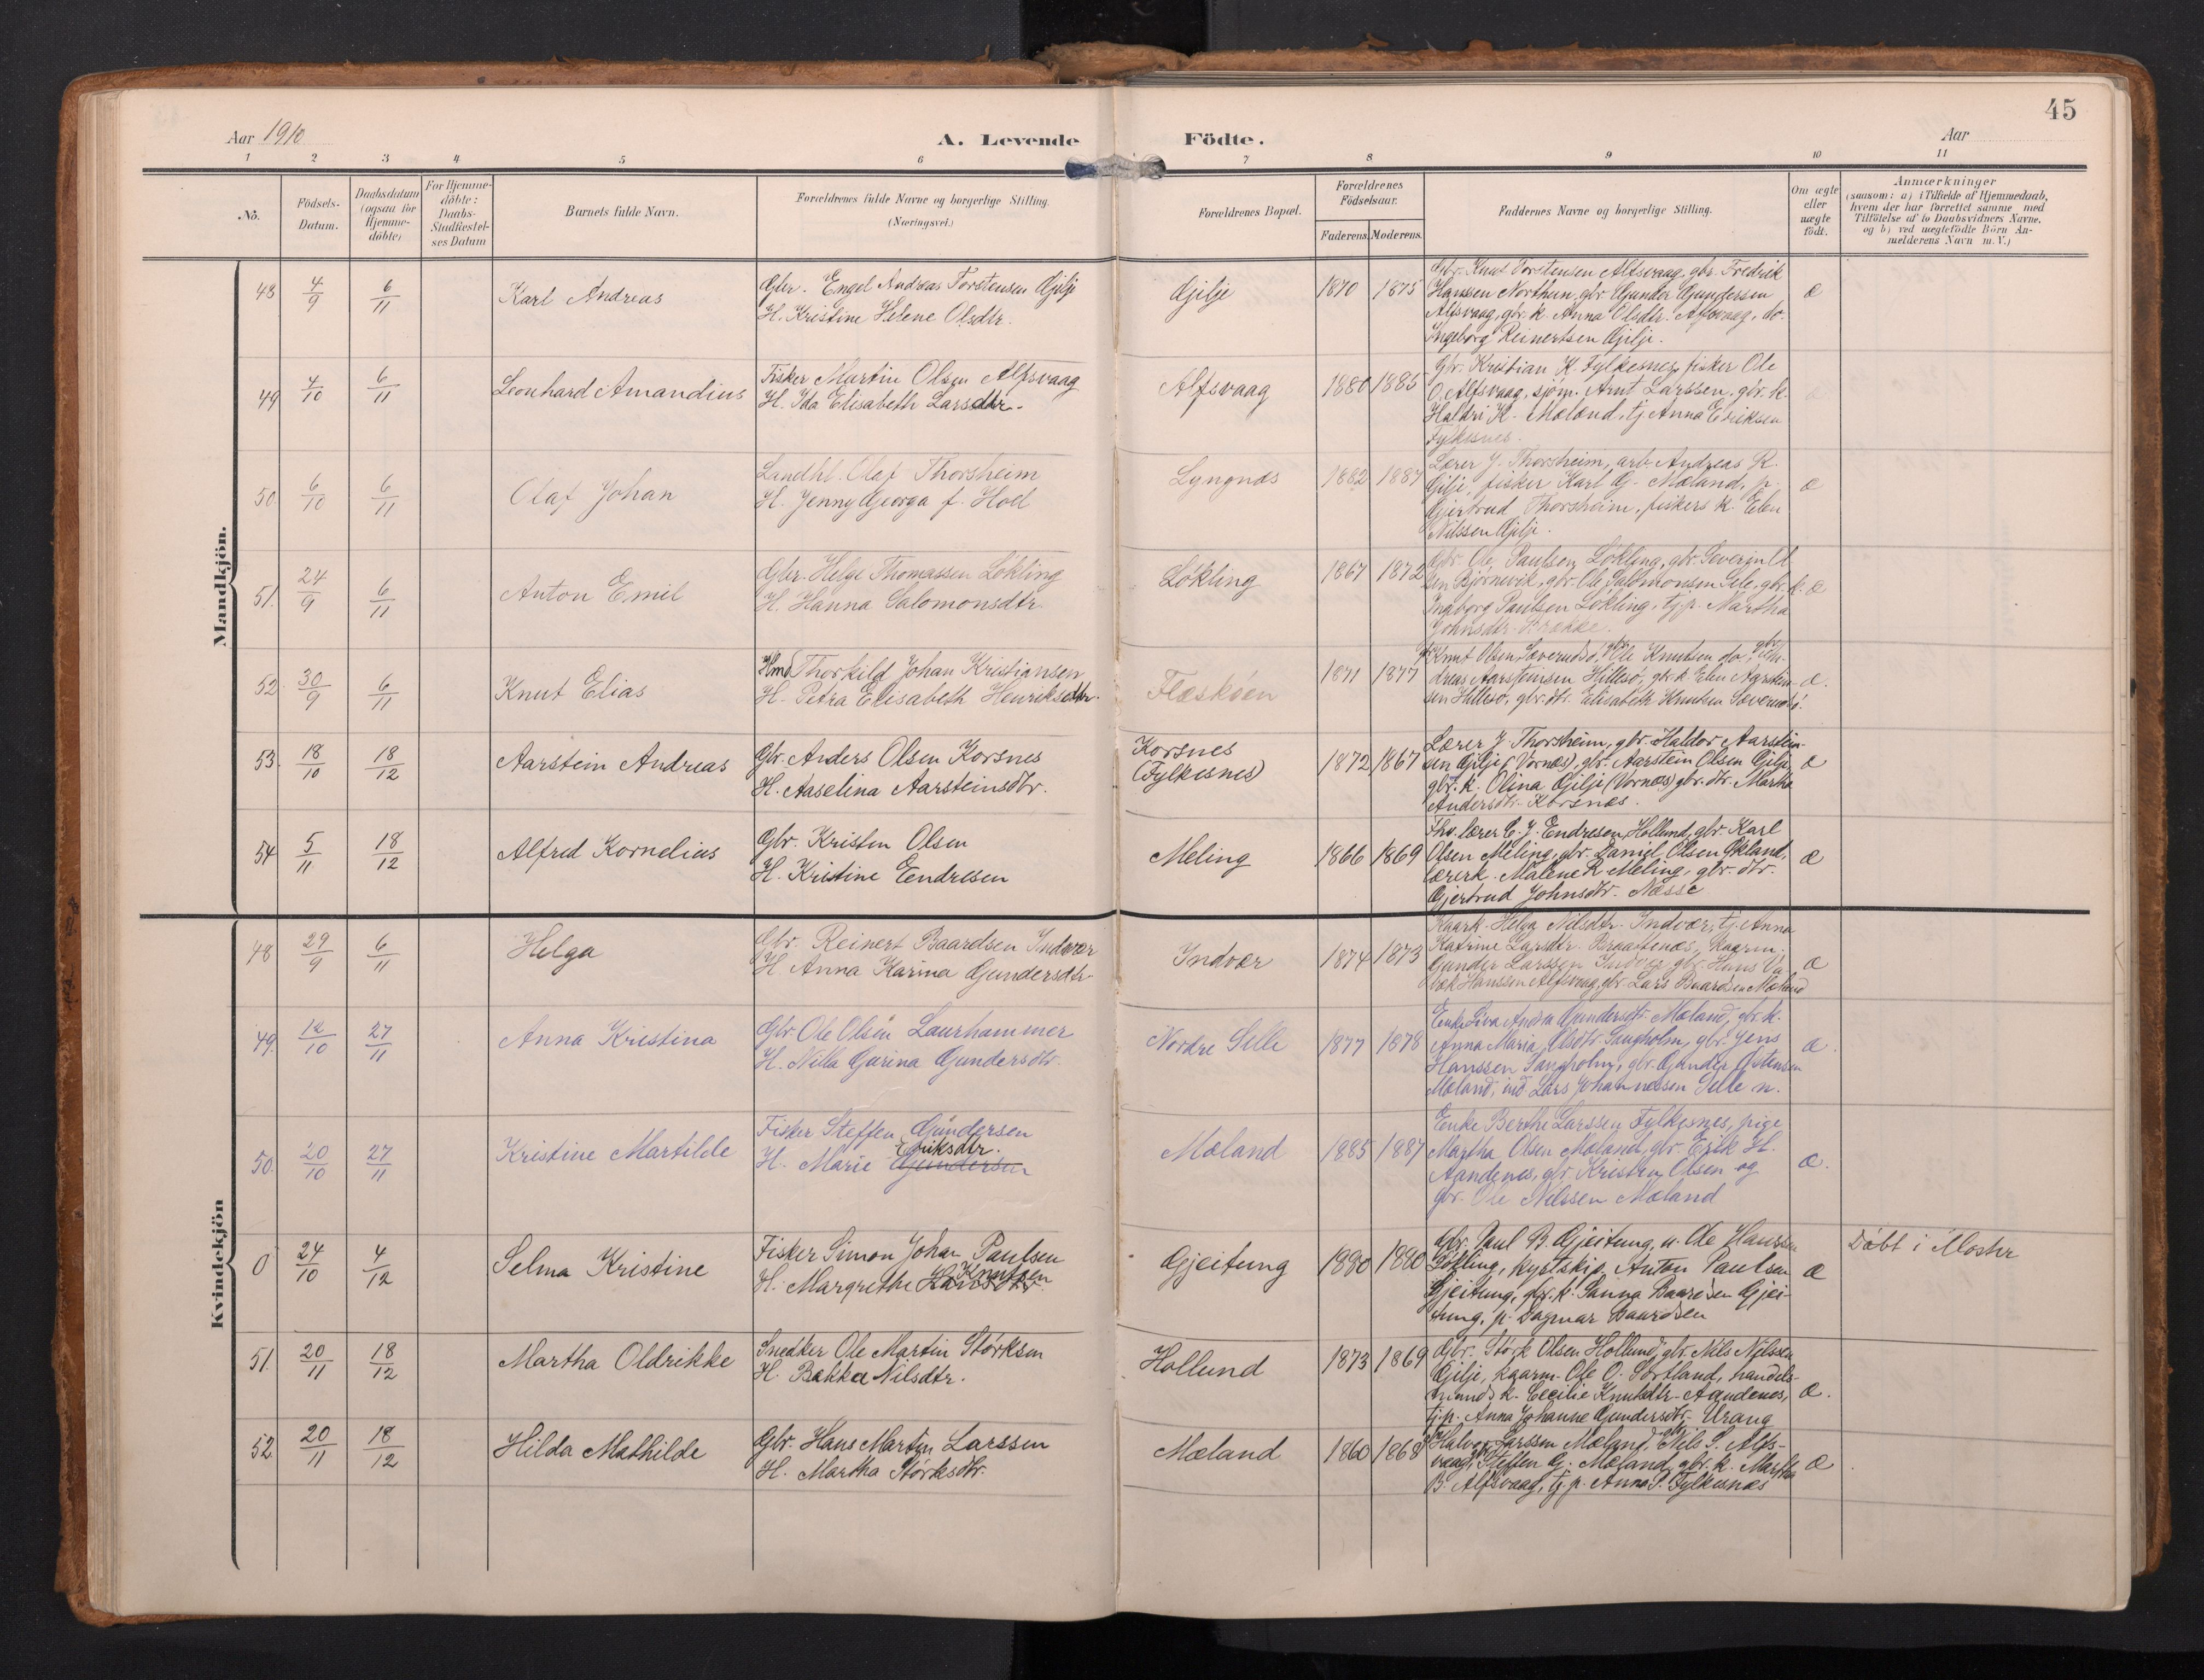 45
Aar 1910
A. Levende Födte.
Aar
1 2 3 4 5 6 7 8 9 10 11
No.
Födsels-
Datum.
Daabsdatum
(ogsaa for
Hjemme-
döbte)
For Hjemme-
döbte:
Daabs-
Stadfæstel-
ses Datum
Barnets fulde Navn.
Forældrenes fulde Navne og borgerlige Stilling.
(Næringsvei.)
Forældrenes Bopæl.
Forældrenes
Födselsaar.
Faderens. Moderens.
Faddernes Navne og borgerlige Stilling.
Om ægte
eller
uægte
födt.
Anmærkninger
(saasom: a) i Tilfælde af Hjemmedaab,
hvem der har forrettet samme med
Tilföielse af to Daabsvidners Navne,
og b) ved uægtefödte Börn An-
melderens Navn m. V.)
Mandkjön.
48 4/9 6/11
Karl Andreas
Gbr. Engel Andreas Torstensen Gjilje
H. Kristine Helene Olsdtr.
Gjilje
1870 1875
Gbr. Knut Torstensen Alfsvaag, gbr. Fredrik
Hanssen Northun, gbr. Gunder Gundersen
Alfsvaag, gbr. k. Anna Olsdtr. Alfsvaag, do.
Ingeborg Reinertsen Gjilje.
æ
49 4/10 6/11
Leonhard Amandius
Fisker Martin Olsen Alfsvaag
H. Ida Elisabeth Larsdtr.
Alfsvaag
1880 1885
Gbr. Kristian K. Fylkesnes, fisker Ole
O. Alfsvaag, sjøm. Arnt Larssen, gbr. k.
Haldri K. Mæland, tj. Anna Eriksen
Fylkesnes.
50 6/10 6/11
Olaf Johan
Landhl. Olaf Thorsheim
H. Jenny Georga f. Holl
Lyngnæs
1882 1887
Lærer J. Thorsheim, arb. Andreas R.
Gilje, fisker Karl G. Mæland, p.
Gjertrud Thorsheim, fiskers k. Elen
Nilssen Gjilje.
æ
51. 24/9 6/11
Anton Emil
Gbr. Helge Thomassen Løkling
H. Hanna Salomonsdtr.
Løkling
1867 1872
Gbr. Ole Paulsen Løkling, gbr. Severin Ol
sen Bjørnevik, gbr. Ole Salomonsen Sele, gbr. k.
Ingborg Paulsen Løkling, tj. p. Martha
Johnsdtr.
æ
52. 30/9 6/11
Knut Elias
Hmd Thorkild Johan Kristiansen
H. Petra Elisabeth Henriksdtr.
Flæskøen
1871 1877
Knut Olsen Søverudsø, gbr. Ole Knutsen do, gbr. An-
dreas Aarsteinsen Hillesø, gbr. k. Elen Aarstein-
sen Hillesø, gbr. dtr. Elisabeth Knutsen
æ.
53. 18/10 18/12
Aarstein Andreas
Gbr. Anders Olsen Korsnes
H. Aaselina Aarsteinsdtr.
Korsnes
(Fylkesnes)
1872 1867
Lærer J. Thorsheim, gbr. Haldor Aarstein-
sen Gjilje (Vornæs), gbr. Aarstein Olsen Gilje,
gbr. k. Olina Gjilje (Vornæs) gbr. dtr. Martha
Andersdtr. Korsnæs.
æ
54 5/11 18/12
Alfred Kornelius
Gbr. Kristen Olsen
H. Kristine Eendresen
Meling
1866 1869
Fhv. lærer E. J. Endresen, Hollund, gbr. Karl
Olsen Meling, gbr. Daniel Olsen Økland,
lærerk. Malene R Meling, gbr. dtr.
Gjertrud Johnsdtr. Næsse
æ
Kvindekjön
48 29/9 6/11
Helga
Gbr. Reinert Baardsen Indvær
H. Anna Karina Gundersdtr.
Indvær
1874 1873
Kaark. Helga Nilsdtr. Indvær, tj. Anna
Katrine Larsdtr. Braatenæs, kaarm.
Gunder Larssen Indvær, gbr. Hans
Hanssen Alfsvaag, gbr. Lars Baardsen Mæland
æ
49. 12/10 27/11
Anna Kristina
Gbr. Ole Olsen Laurhammer
H. Nilla Gurina Gundersdtr.
Nordre Selle
1877 1878
Enke Siva Andra Gundersdtr. Mæland, gbr. k.
Anna Maria Olsdtr. Sangholm, gbr. Jens
Hanssen Sangholm, gbr. Gunder Østensen
Mæland, ind. Lars Johannessen Selle n.
æ.
50. 20/10 27/11
Kristine Martilde
Fisker Steffen Gundersen
Eriksdtr.
H. Marie Gundersen
Mæland
1885 1887
Enke Berthe Larssen Fylkesnes, pige
Martha Olsen Mæland, gbr. Erik H.
Aandenes, gbr. Kristen Olsen og
gbr. Ole Nilssen Mæland
æ.
0 24/10 4/12
Selma Kristine
Fisker Simon Johan Paulsen
Knutsen
H. Margrethe Hansdtr.
Gjeitung
1880 1880
Gbr. Paul B. Gjeitung, u. Ole Hanssen
Løkling, kystskip. Anton Paulsen
Gjeitung, gbr. k. Sanna Baardsen Gjei-
tung, p. Dagmar Baardsen
æ
Døbt i Moster
51. 20/11 18/12
Martha Oldrikke
Snedker Ole Martin Størksen
H. Bakka Nilsdtr.
Hollund
1873 1869
Gbr. Størk Olsen Hollund, gbr. Nils Nilssen
Gjilje, kaarm. Ole O. Sortland, handels-
mands k. Cecilie Knutsdtr. Aandenes,
tj. p. Anna Johanne Gundersdtr. Urang
æ.
52. 20/11 18/12
Hilda Mathilde
Gbr. Hans Martin Larssen
H. Martha Størksdtr.
Mæland
1860 1868
Halvor Larssen Mæland, Nils S. Alfs-
vaag, Steffen G. Mæland, gbr. k. Martha
B. Alfsvaag, tj. p. Anna S. Fylkesnæs
æ